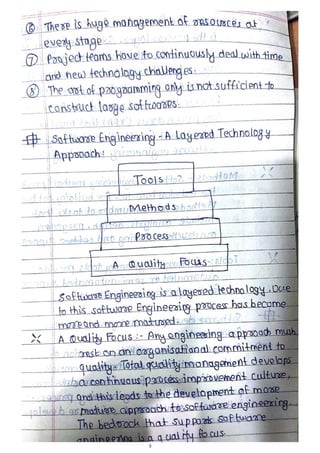 ⑥ There is huge management of resources at
every stage
⑦ Project teams have to continuously deal with time
and new technology challenges.
⑧ The art of programming only is not sufficient to
construct large softwares.
Software Engineering - A Layered Technology
Approach:
Tools
Methods
Process
A Quality Focus
Software Engineering is a layered technology. Due
to this software Engineering process has become
more and more matured.
A Quality Focus :- Any engineering approach must
rest on an organisational commitment to
quality. Total quality management develops
a continuous process improvement culture,
and this leads to the development of more
mature approach to software engineering.
The bedrock that supports software
engineering is a quality focus.